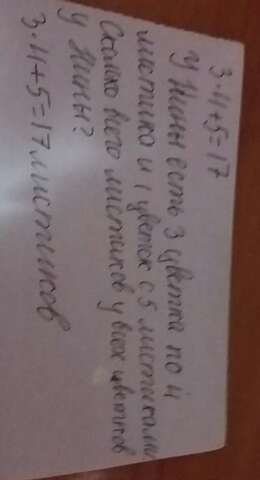 3·4+5=17
У Нины есть 3 цветка по 4
листико и 1 цветок с 5 листиками
Сколко всего листиков у всех цветков
у Нины?
3·4+5=17 листиков